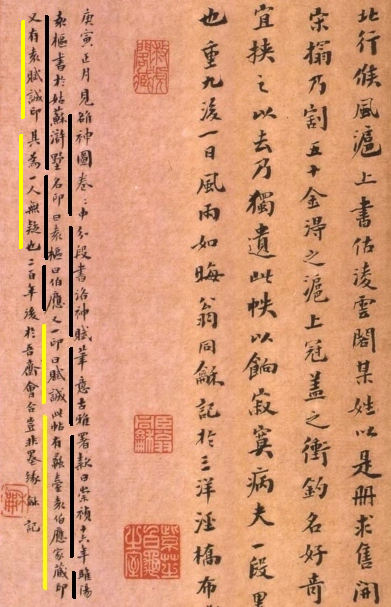 北行候風滬上書估淩雲閣某姓以是冊求售開
宋搨乃割五十金得之滬上冠盖之衝釣名好奇
宜挾之以去乃獨遺此帙以餉寂寞病夫一段
也重九後一日風雨如晦翁同龢記於三洋涇橋布
庚寅正月見雒神圖卷〻中分段書洛神賦筆意古雅署款曰崇禎十六年睢陽
袁樞書於姑蘇滸墅名印曰袁樞曰伯應人一印曰賦誠此帖有蘇臺袁伯應家藏印
又有袁賦誠印其為一人無疑也二百年後於吾齋會合豈非墨緣龢記
紫芝白龜之室